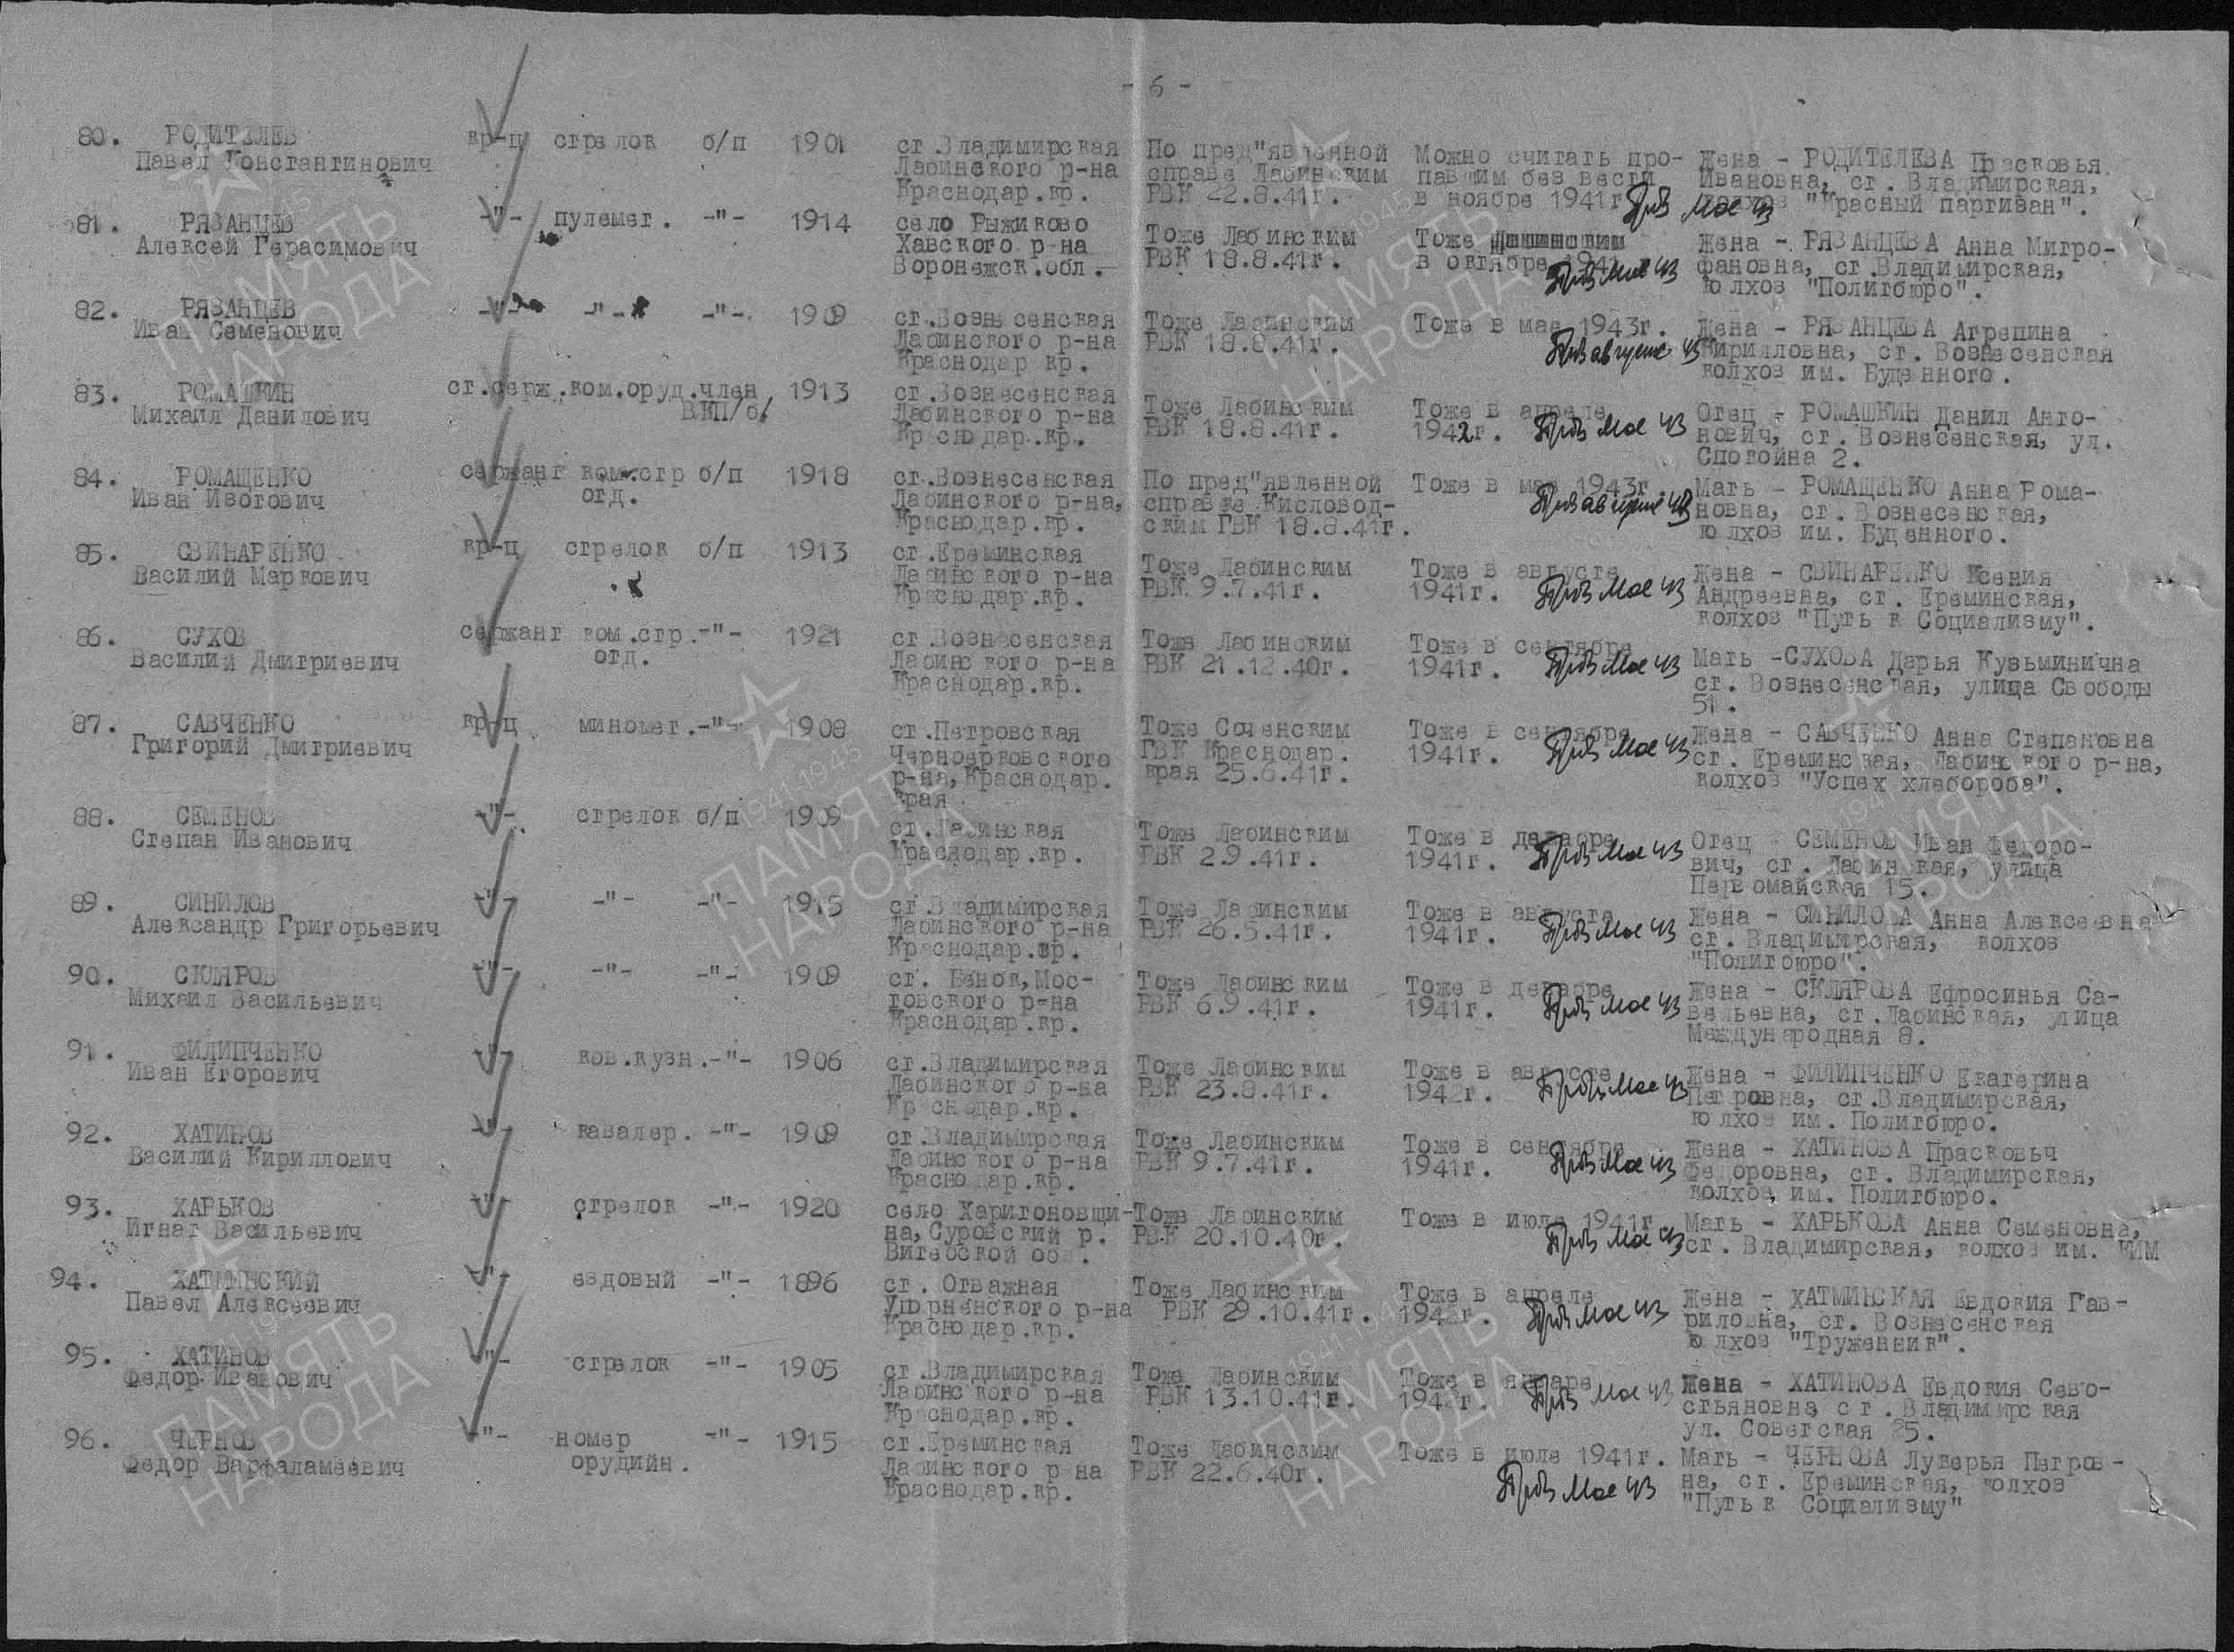 - 6 -
80. РОДИТЕЛЕВ
Павел Константинович
кр-ц стрелок б/п 1901
ст.Владимирская
Лабинского р-на
Краснодар.кр.
По пред"явленной
справе Лабинским
РВК 22.8.41г.
Можно считать про-
павшим без вести
в ноябре 1941г.
Жена - РОДИТЕЛЕВА Прасковья
Ивановна, ст. Владимирская,
колхоз "Красный партизан".
81. РЯЗАНЦЕВ
Алексей Герасимович
-"- пулемет. -"- 1914
село Рыжиково
Хавского р-на
Воронежск.обл.
Тоже Лабинским
РВК 18.8.41г.
Тоже
в октябре 1941
Жена - РЯЗАНЦЕВА Анна Митро-
фановна, ст.Владимирская,
колхоз "Политбюро".
82. РЯЗАНЦЕВ
Иван Семенович
-"- -"- -"-. 1909
ст.Вознесенская
Лабинского р-на
Краснодар кр.
Тоже Лабинским
РВК 18.8.41г.
Тоже в мае 1943г.
Жена - РЯЗАНЦЕВА Агрепина
Кирилловна, ст. Вознесенская
колхоз им. Буденного.
83. РОМАШКИН
Михаил Данилович
ст.серж.ком.оруд.член 1913
ВКП/б/
ст.Вознесенская
Лабинского р-на
Краснодар.кр.
Тоже Лабинским
РВК 18.8.41г.
Тоже в апреле
1942г.
Отец - РОМАШКИН Данил Анто-
нович, ст. Вознесенская, ул.
Спокойна 2.
84. РОМАЩЕНКО
Иван Изотович
сержант ком.стр б/п 1918
отд.
ст.Вознесенская
Лабинского р-на,
Краснодар.кр.
По пред"явленной
справке Кисловод-
ским ГВК 18.8.41г.
Тоже в мае 1943г
Мать - РОМАЩЕНКО Анна Рома-
новна, ст. Вознесенская,
колхоз им. Буденного.
85. СВИНАРЕНКО
Василий Маркович
кр-ц стрелок б/п 1913
ст.Ереминская
Лабинского р-на
Краснодар.кр.
Тоже Лабинским
РВК 9.7.41г.
Тоже в августе
1941г.
Жена - СВИНАРЕНКО Ксения
Андреевна, ст. Ереминская,
колхоз "Путь к Социализму".
86. СУХОВ
Василий Дмитриевич
сержант ком.стр.-"- 1921
отд.
ст.Вознесенская
Лабинского р-на
Краснодар.кр.
Тоже Лабинским
РВК 21.12.40г.
Тоже в сентябре
1941г.
Мать -СУХОВА Дарья Кузьминична
ст. Вознесенская, улица Свободы
51.
87. САВЧЕНКО
Григорий Дмитриевич
кр-ц миномет.-"- 1908
ст.Петровская
Черноерковского
р-на,Краснодар.
края
Тоже Соченским
ГВК Краснодар.
края 25.6.41г.
Тоже в сентябре
1941г.
Жена - САВЧЕНКО Анна Степановна
ст. Ереминская, Лабинского р-на,
колхоз "Успех хлебороба".
88. СЕМЕНОВ
Степан Иванович
-"- стрелок б/п 1909
ст.Лабинская
Краснодар.кр.
Тоже Лабинским
РВК 2.9.41г.
Тоже в декабре
1941г.
Отец - СЕМЕНОВ Иван Федоро-
вич, ст. Лабинская, улица
Первомайская 15.
89. СИНИЛОВ
Александр Григорьевич
-"- -"- -"- 1915
ст.Владимирская
Лабинского р-на
Краснодар.кр.
Тоже Лабинским
РВК 26.5.41г.
Тоже в августе
1941г.
Жена - СИНИЛОВА Анна Алексеевна
ст. Владимирская, колхоз
"Политбюро".
90. СКЛЯРОВ
Михаил Васильевич
-"- -"- -"- 1909
ст. Бенок,Мос-
товского р-на
Краснодар.кр.
Тоже Лабинским
РВК 6.9.41г.
Тоже в декабре
1941г.
Жена - СКЛЯРОВА Ефросинья Са-
вельевна, ст.Лабинская, улица
Международная 8.
91. ФИЛИПЧЕНКО
Иван Егорович
-"- ков.кузн.-"- 1906
ст.Владимирская
Лабинского р-на
Краснодар.кр.
Тоже Лабинским
РВК 23.8.41г.
Тоже в августе
1942г.
Жена - ФИЛИПЧЕНКО Екатерина
Петровна, ст.Владимирская,
колхоз им. Политбюро.
92. ХАТИНОВ
Василий Кириллович
-"- кавалер. -"- 1909
ст.Владимирская
Лабинского р-на
Краснодар.кр.
Тоже Лабинским
РВК 9.7.41г.
Тоже в сентябре
1941г.
Жена - ХАТИНОВА Прасковьч
Федоровна, ст. Владимирская,
колхоз им. Политбюро.
93. ХАРЬКОВ
Игнат Васильевич
-"- стрелок -"- 1920
село Харитоновщи-
на,Суровский р.
Витебской обл.
Тоже Лабинским
РВК 20.10.40г.
Тоже в июле 1941г
Мать - ХАРЬКОВА Анна Семеновна,
ст. Владимирская, колхоз им. КИМ
94. ХАТМИНСКИЙ
Павел Алексеевич
-"- ездовый -"- 1896
ст. Отважная
Упорненского р-на
Краснодар.кр.
Тоже Лабинским
РВК 29.10.41г.
Тоже в апреле
1942г.
Жена - ХАТМИНСКАЯ Евдокия Гав-
риловна, ст. Вознесенская
колхоз "Труженник".
95. ХАТИНОВ
Федор Иванович
-"- стрелок -"- 1905
ст.Владимирская
Лабинского р-на
Краснодар.кр.
Тоже Лабинским
РВК 13.10.41г.
Тоже в январе
1942г.
Жена - ХАТИНОВА Евдокия Сево-
стьяновна ст.Владимирская
ул. Советская 25.
96. ЧЕРНОВ
Федор Варфаламеевич
-"- номер -"- 1915
орудийн.
ст.Ереминская
Лабинского р-на
Краснодар.кр.
Тоже Лабинским
РВК 22.6.40г.
Тоже в июле 1941г.
Мать - ЧЕРНОВА Лукерья Петров-
на, ст. Ереминская, колхоз
"Путь к Социализму"
1941-1945
ПАМЯТЬ
НАРОДА